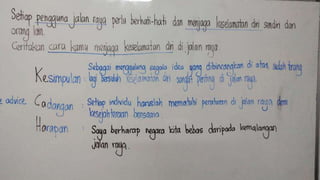 Setiap pengguna jalan raya perlu berhati-hati dan menjaga keselamatan diri sendiri dan
orang lain.
Ceritakan cara kamu menjaga keselamatan diri di jalan raya.
Sebagai menggulung segala idea yang dibincangkan di atas, sudah terang
Kesimpulan: lagi bersuluh keselamatan diri sangat penting di jalan raya.
e advice Cadangan: Setiap individu haruslah mematuhi peraturan di jalan raya demi
kesejahteraan bersama.
Harapan : Saya berharap negara kita bebas daripada kemalangan
jalan raya.